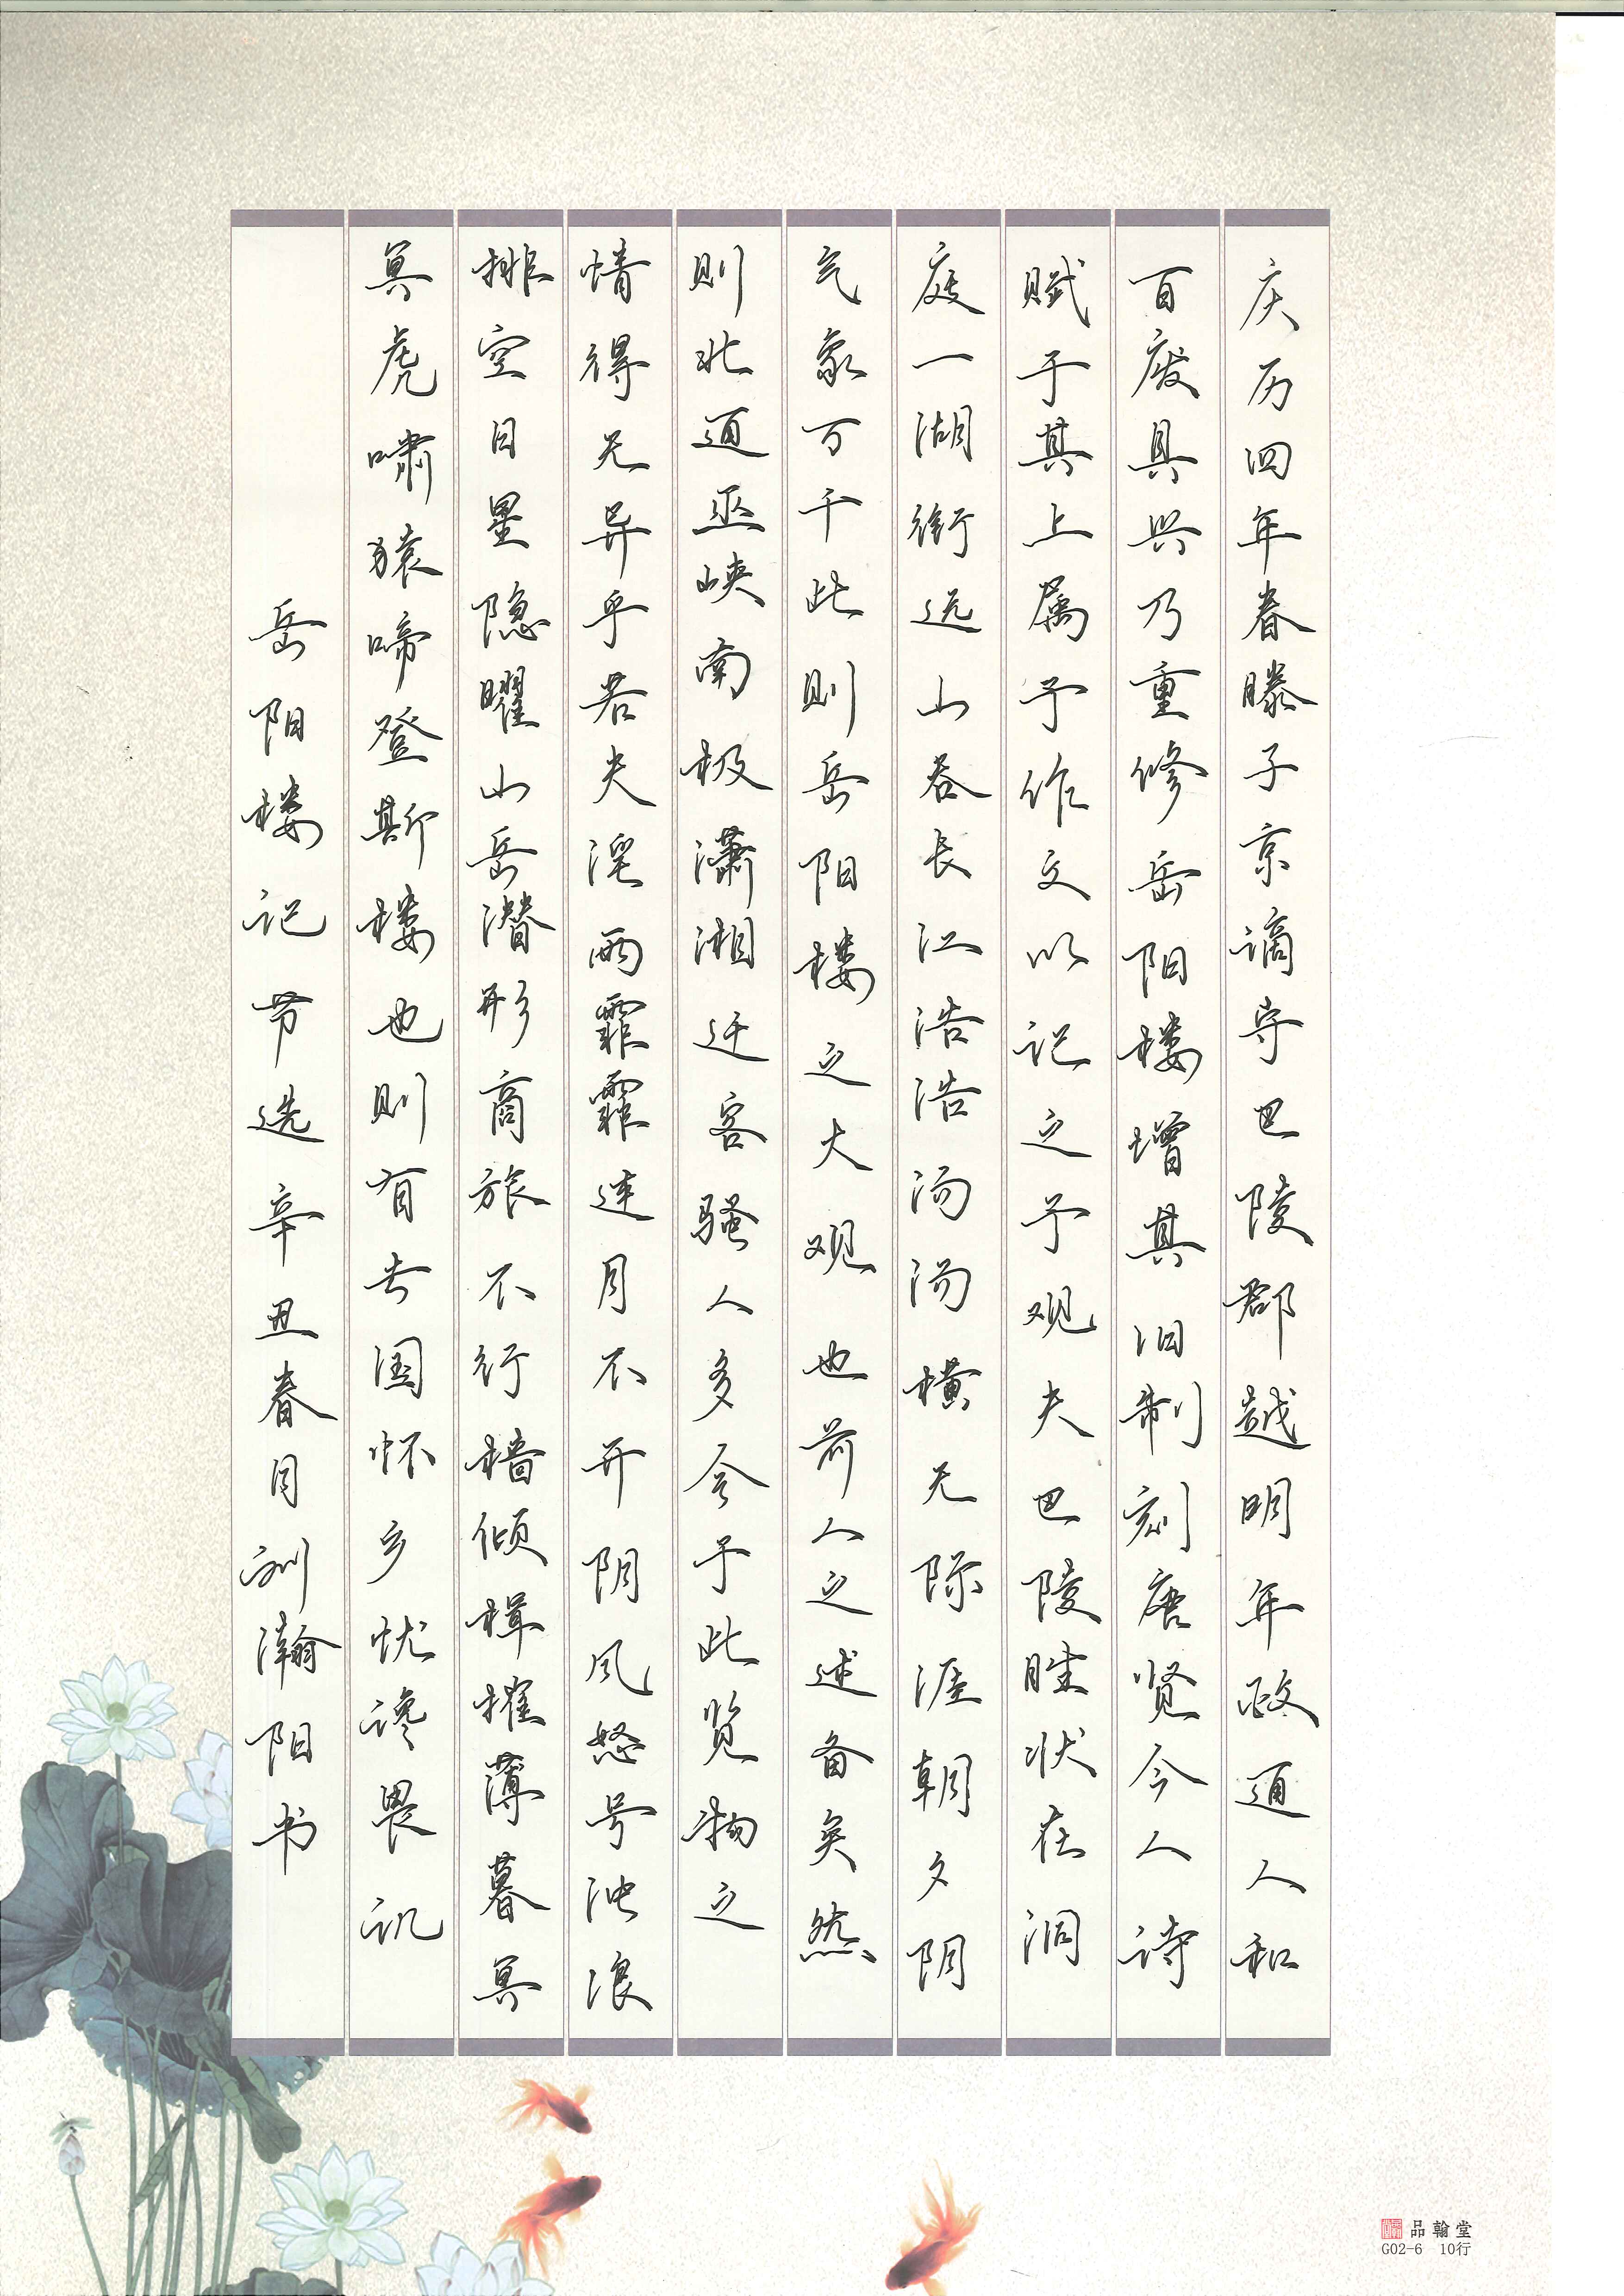 庆历四年春滕子京谪守巴陵郡越明年政通人和
百废具兴乃重修岳阳楼增其旧制刻唐贤今人诗
赋于其上属予作文以记之予观夫巴陵胜状在洞
庭一湖衔远山吞长江浩浩汤汤横无际涯朝夕阴
气象万千此则岳阳楼之大观也前人之述备矣然
则北通巫峡南极潇湘迁客骚人多会于此览物之
情得无异乎若夫淫雨霏霏连月不开阴风怒号浊浪
排空日星隐曜山岳潜形商旅不行樯倾楫摧薄暮冥
冥虎啸猿啼登斯楼也则有去国怀乡忧谗畏讥
岳阳楼记节选辛丑春月训瀚阳书
品翰堂
G02-6 10行